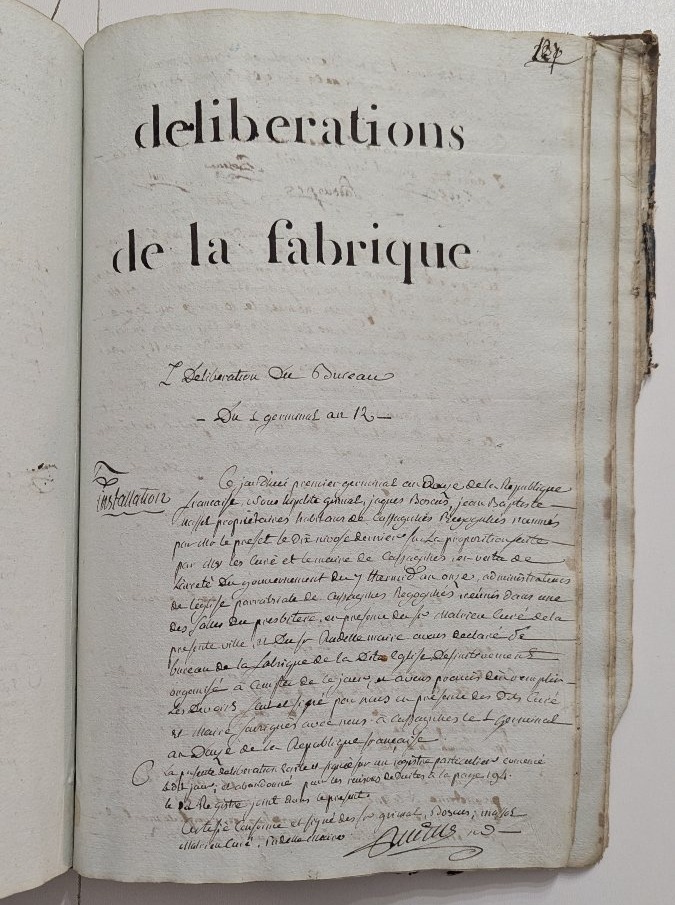 137
deliberations
de la fabrique
1 Deliberation Du Bureau
- Du 1 germinal an 12 -
Installation
Ce jourdhui premier germinal an Douze de la Republique
francaise, nous hipolite grimal, jaques Boscus, jean Baptiste
proprietaires habitans de Cassagnies Begognies nommés
par Mr le prefet le Dix nivose dernier sur La proposition faite
par Mrs les Curé et le maire de Cassagnies, en vertu de
L'arreté Du gouvernement du 7 thermidor an onze, administrateurs
de leglise parroissiale de Cassagnes Begognies, reunis dans une
des salles du presbitere, en presence du sr Malrieu Curé de la
presente ville, et Du sr Rudelle maire avons declaré le
bureau de la fabrique de la Dite Eglise Definitivement
organisé a Compter de ce jour, et avons promis den remplir
les Devoirs fait et signé par nous en presence des Dits Curé
et Maire signés avec nous a Cassagnies le 1 Germinal
an Douze de la Republique francaise
la presente deliberation écrite et signée sur un registre particulier comencé
le dit jour, et abandonné par les raisons deduites a la page 194.
le Registre joint dans le present.
Certifie Conforme et signé des sr grimal, Boscus,
Malrieu Curé, Rudelle Maire